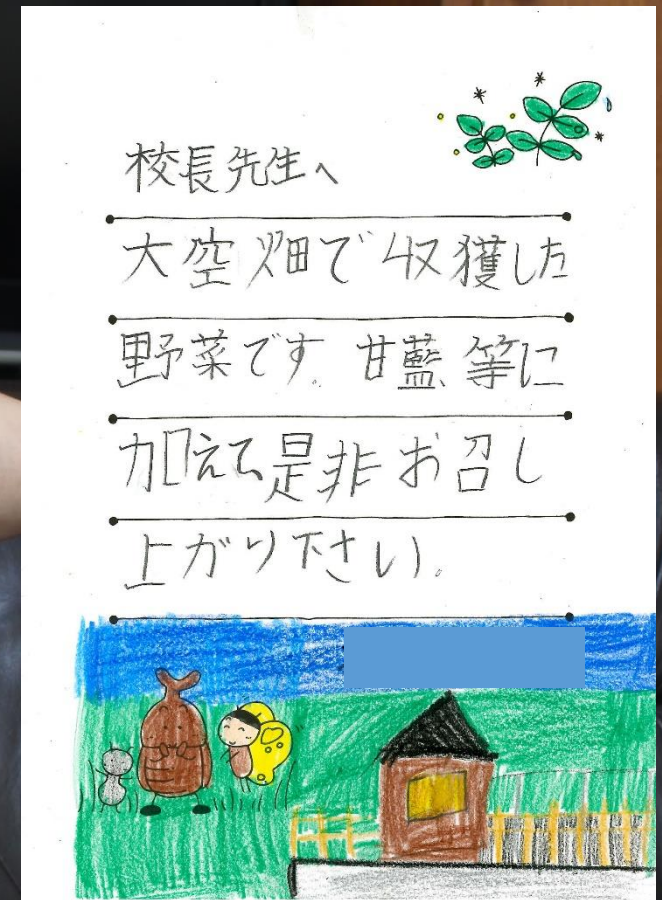 校長先生へ
大空畑で収獲した
野菜です。甘藍等に
加えて是非お召し
上がり下さい。